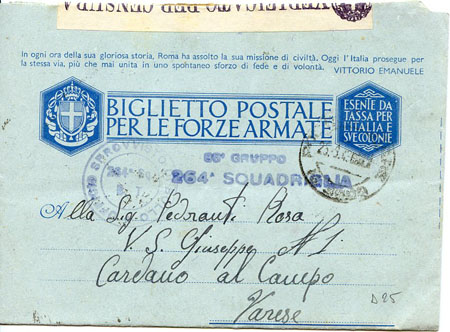 VERIFICATO PER CENSURA
In ogni ora della sua gloriosa storia, Roma ha assolto la sua missione di civiltà, Oggi l'Italia prosegue per
la stessa via, più che mai unita in uno spontaneo sforzo di fede e di volontà. VITTORIO EMANUELE
BIGLIETTO POSTALE
PER LE FORZE ARMATE
ESENTE DA
TASSA PER
L'ITALIA E
SUE COLONIE
66° GRUPPO
264ª SQUADRIGLIA
Alla Sig. Pedranti Rosa
V. S. Giuseppe N 1
Cardano al Campo
Varese